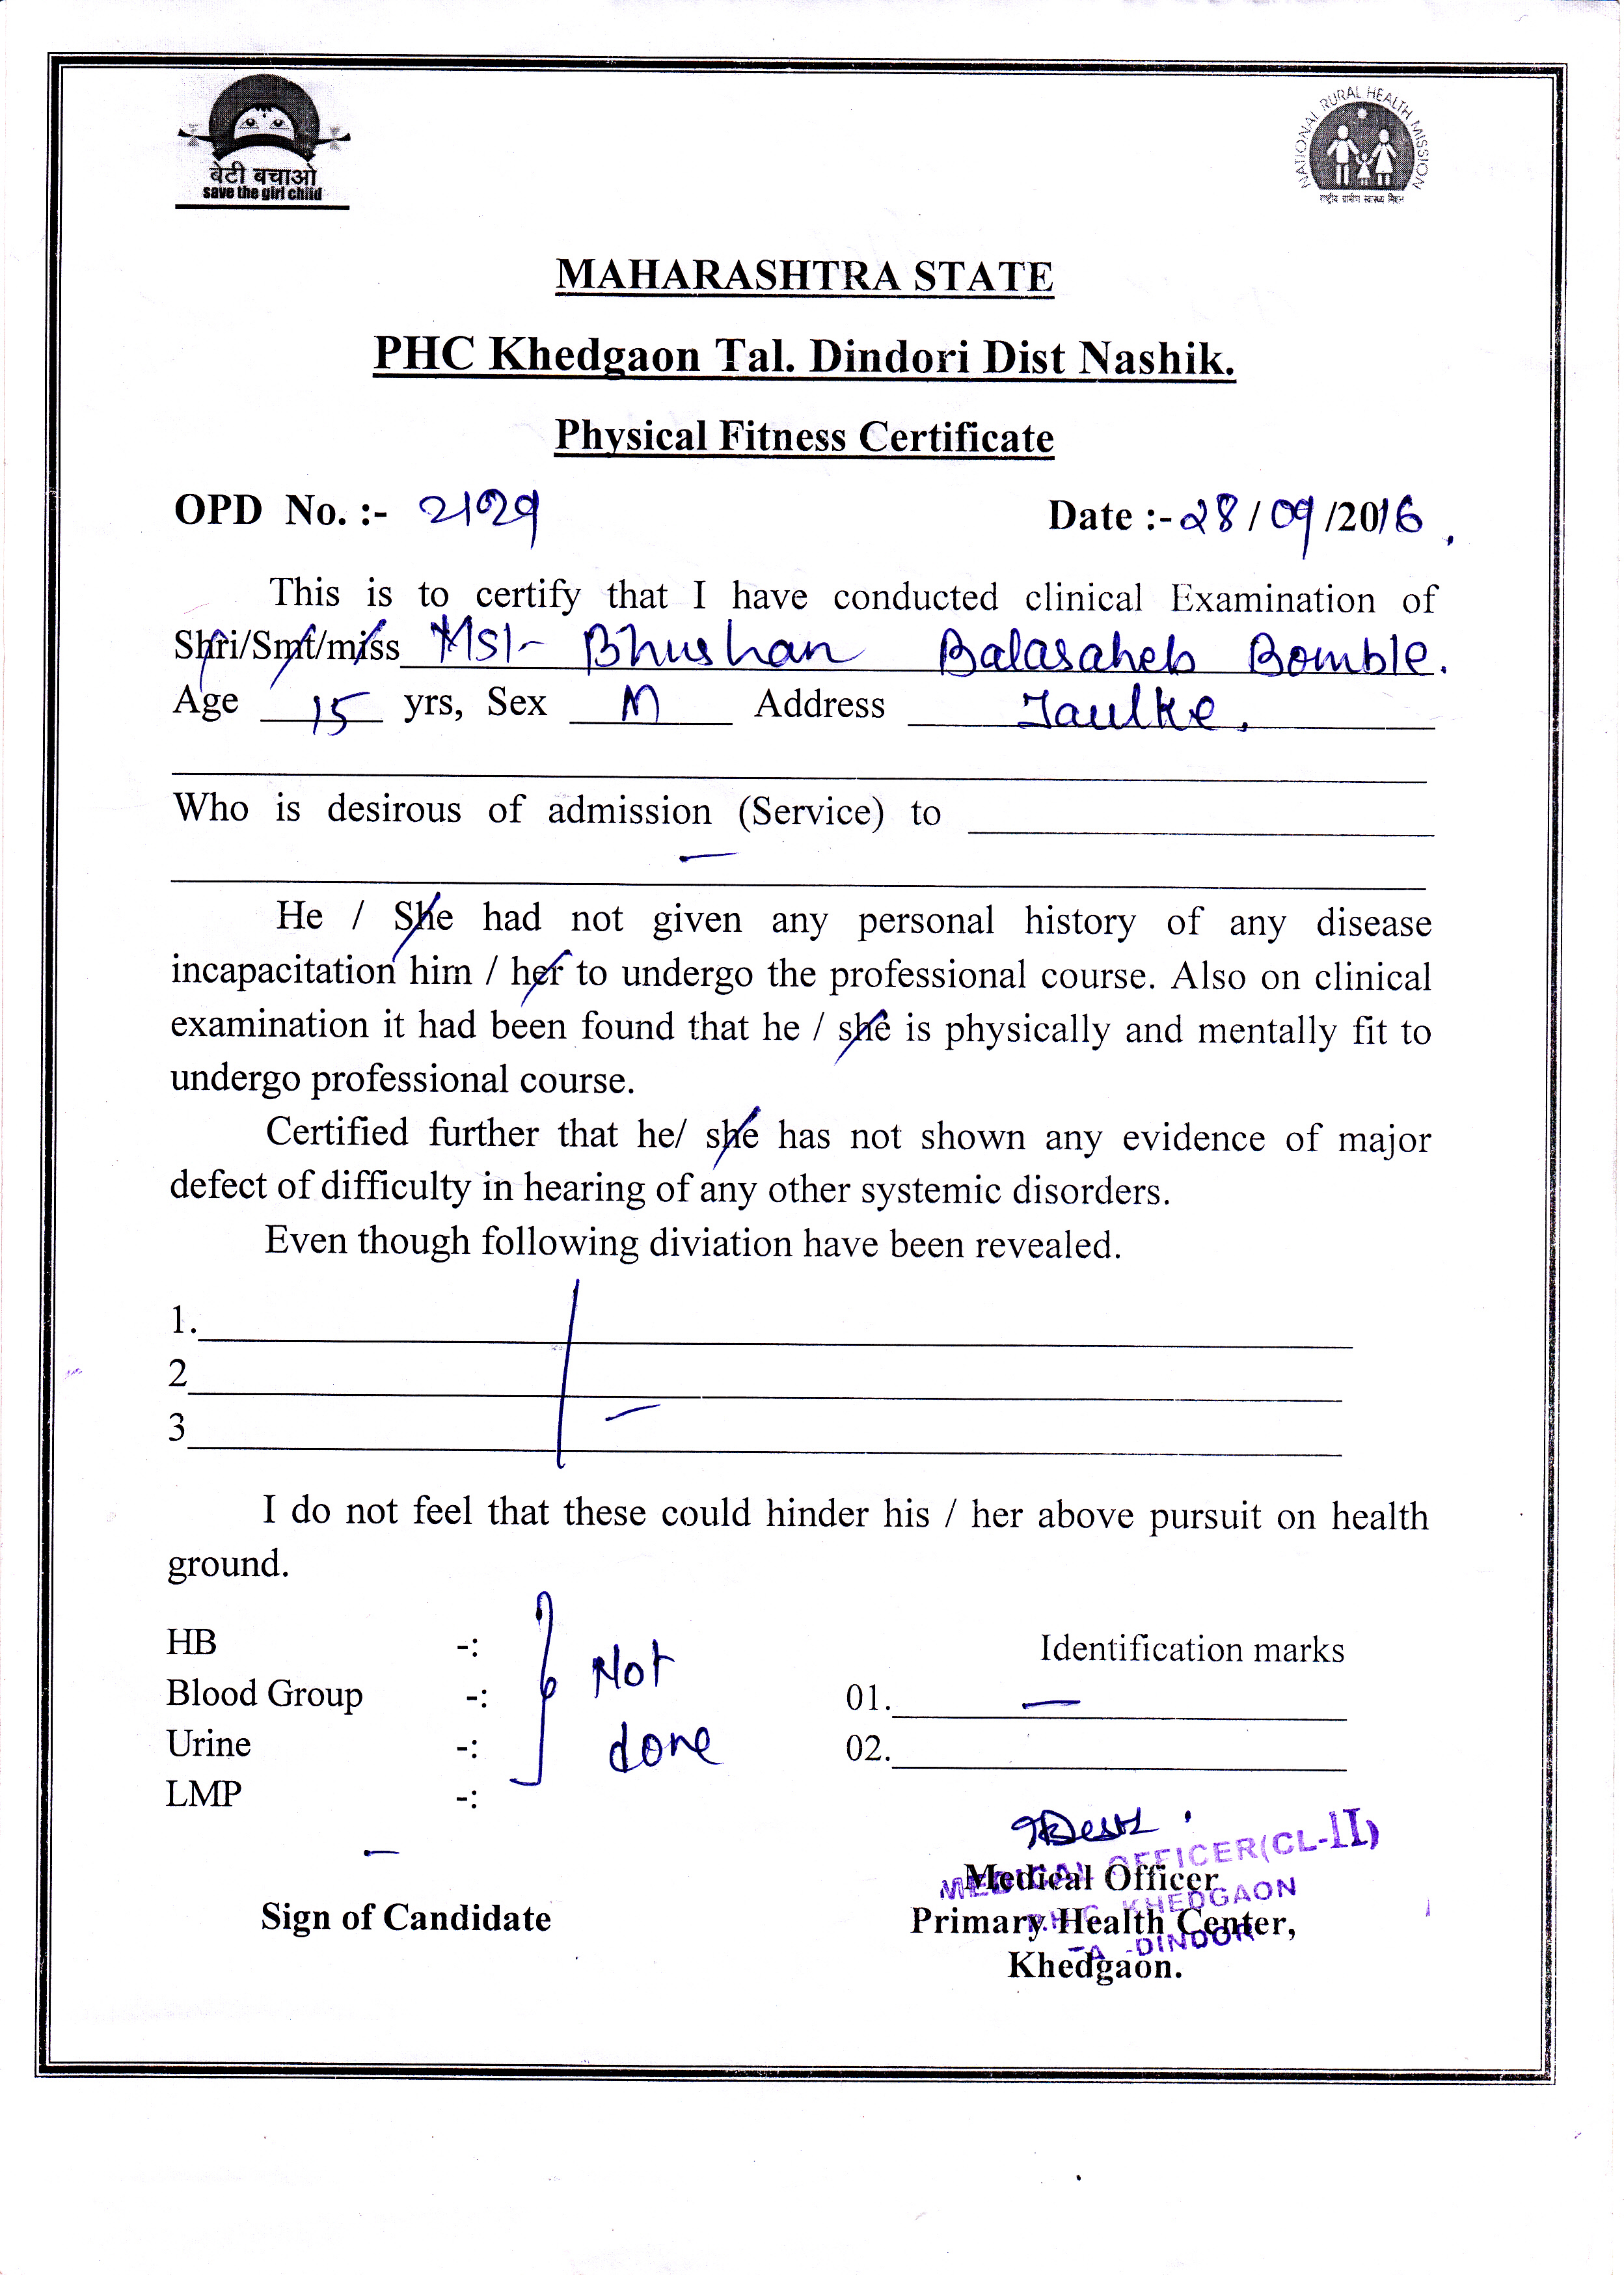 बेटी बचाओ
save the girl child
NATIONAL RURAL HEALTH MISSION
राष्ट्रीय ग्रामीण स्वास्थ्य मिशन
MAHARASHTRA STATE
PHC Khedgaon Tal. Dindori Dist Nashik.
Physical Fitness Certificate
OPD No. :- 2129 Date :- 28/09/2016.
This is to certify that I have conducted clinical Examination of
Shri/Smt/miss Mst- Bhushan Balasaheb Bomble.
Age 15 yrs, Sex M Address Jaulke.
Who is desirous of admission (Service) to
—
He / She had not given any personal history of any disease
incapacitation him / her to undergo the professional course. Also on clinical
examination it had been found that he / she is physically and mentally fit to
undergo professional course.
Certified further that he/ she has not shown any evidence of major
defect of difficulty in hearing of any other systemic disorders.
Even though following diviation have been revealed.
1.
2
3 —
I do not feel that these could hinder his / her above pursuit on health
ground.
HB -: Identification marks
Blood Group -: Not 01. —
Urine -: done 02.
LMP -:
—
MEDICAL OFFICER(CL-II)
Medical Officer
P.H.C. KHEDGAON
Sign of Candidate Primary Health Center,
DINDORI
Khedgaon.